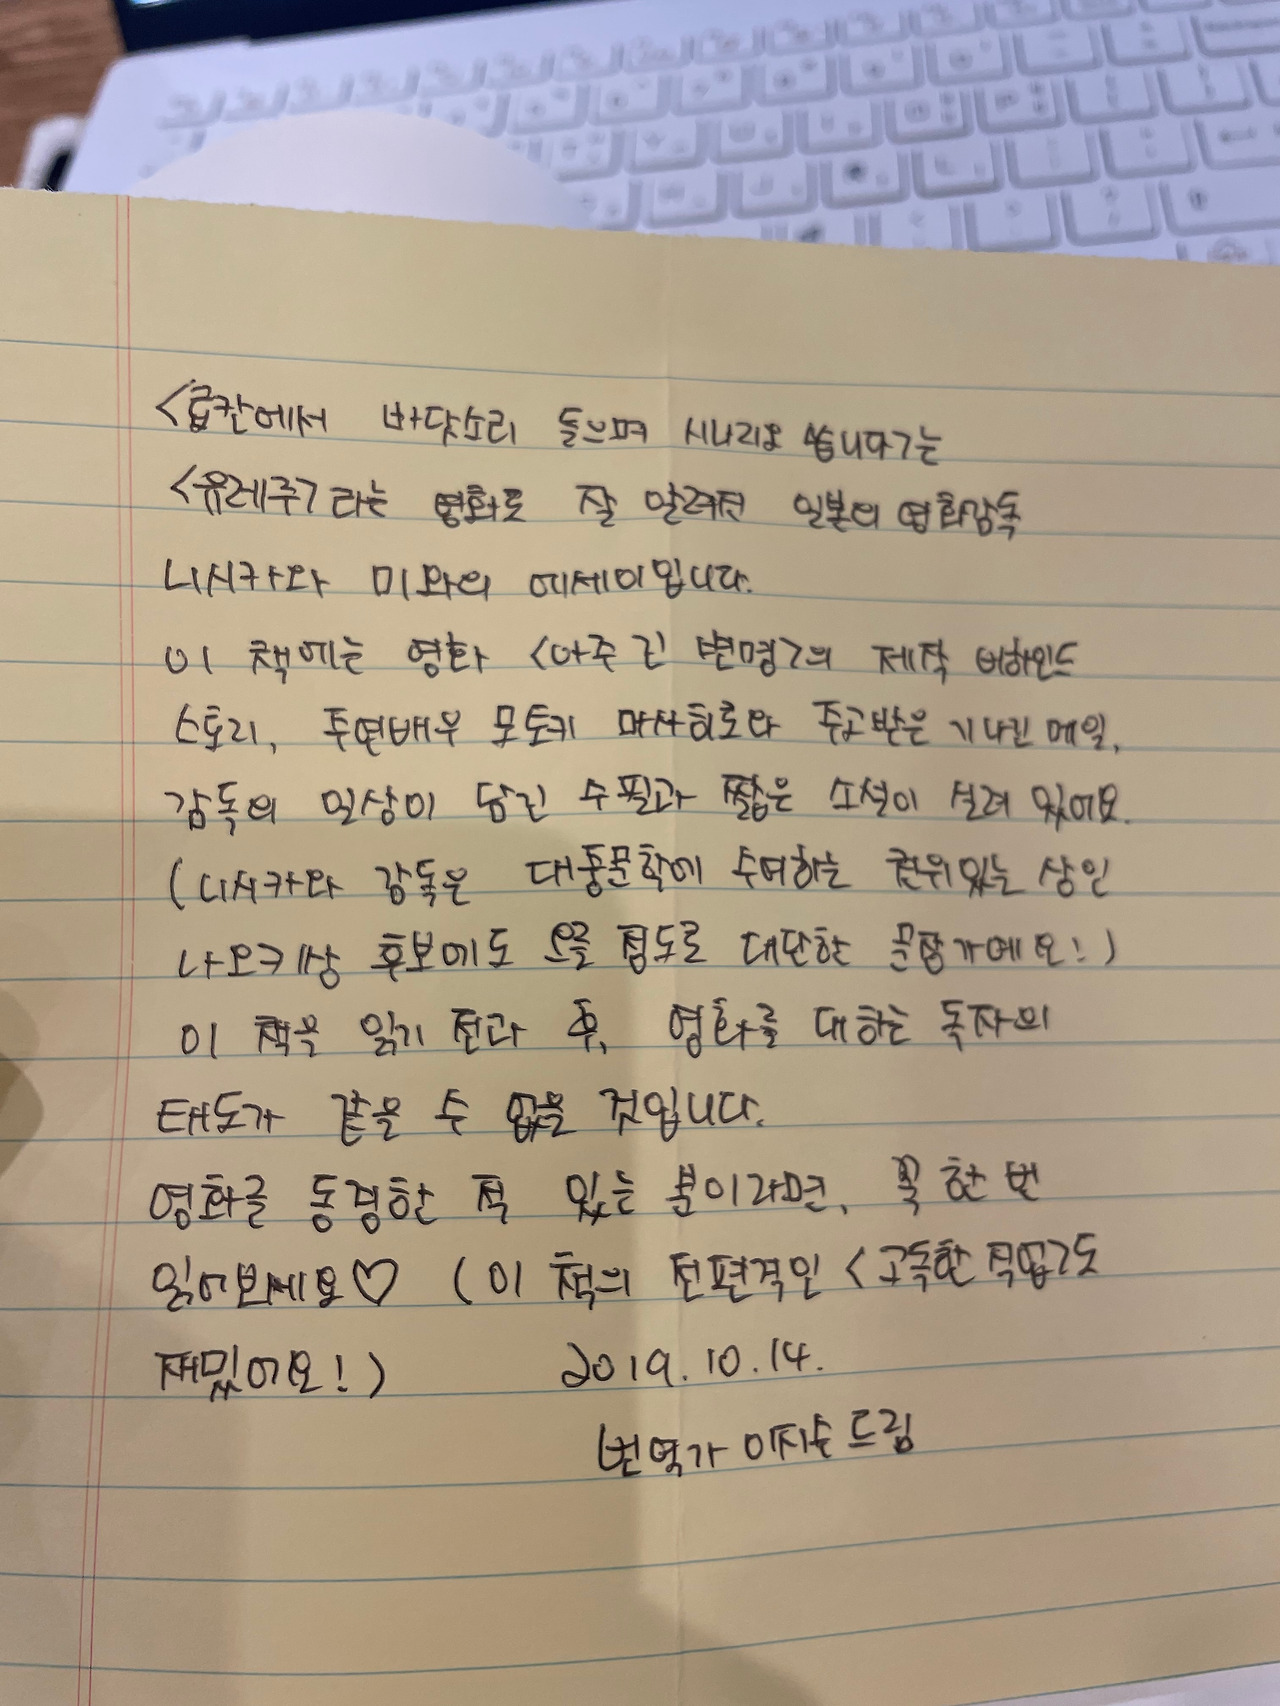 <료칸에서 바닷소리 들으며 시나리오 씁니다>는
<유레루>라는 영화로 잘 알려진 일본의 영화감독
니시카와 미와의 에세이입니다.
이 책에는 영화 <아주 긴 변명>의 제작 비하인드
스토리, 주연배우 모토키 마사히로와 주고받은 기나긴 메일,
감독의 일상이 담긴 수필과 짧은 소설이 실려 있어요.
(니시카와 감독은 대중문학에 수여하는 권위있는 상인
나오키상 후보에도 오를 정도로 대단한 문장가예요!)
이 책을 읽기 전과 후, 영화를 대하는 독자의
태도가 같을 수 없을 것입니다.
영화를 동경한 적 있는 분이라면, 꼭 한 번
읽어보세요♡ (이 책의 전편격인 <고독한 직업>도
재밌어요!) 2019.10.14.
번역가 이지수 드림